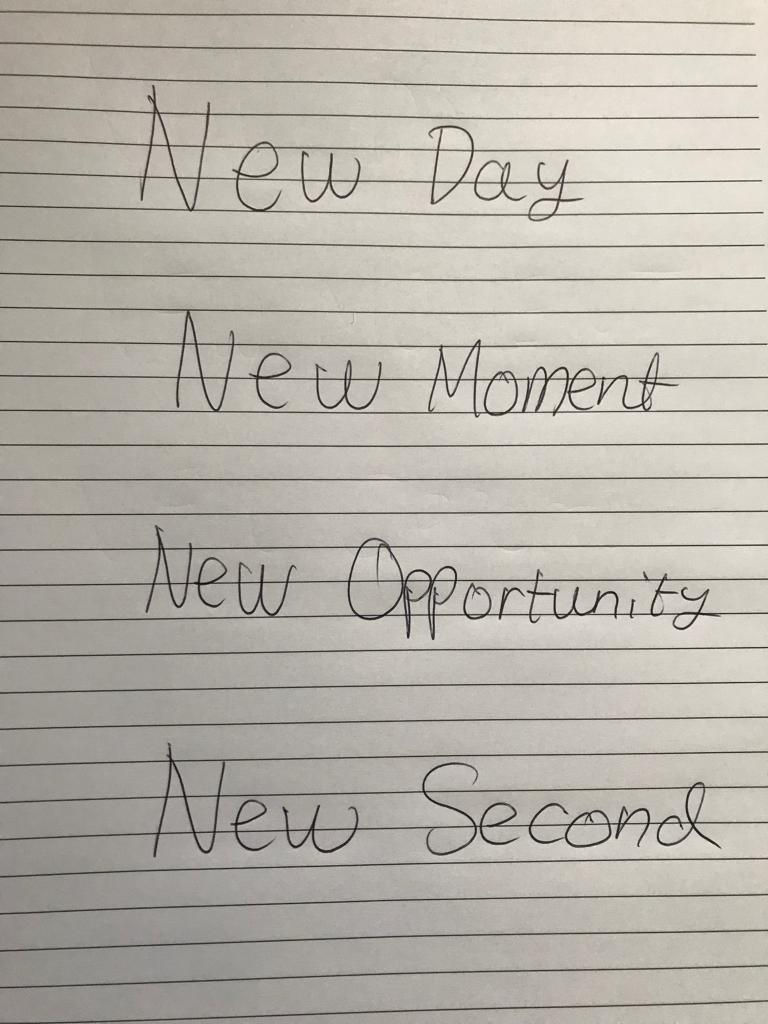 New Day
New Moment
New Opportunity
New Second